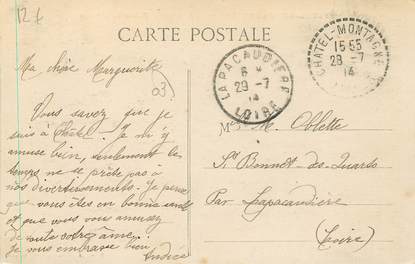 12 t
CARTE POSTALE
LA PACAUDIERE
29 -7
14
LOIRE
CHATEL-MONTAGNE
15 55
28 -7
14
Ma chère Marguerite
03
Vous savez que je
suis à Châtel. Je m'y
amuse bien, seulement le
temps ne se prête pas à
nos divertissements. Je pense
que vous êtes en bonne santé
et que vous vous amusez
de toute votre âme.
Je vous embrasse bien
M. Oblette
St Bonnet-des-Quarts
Par Lapacaudière
(Loire)